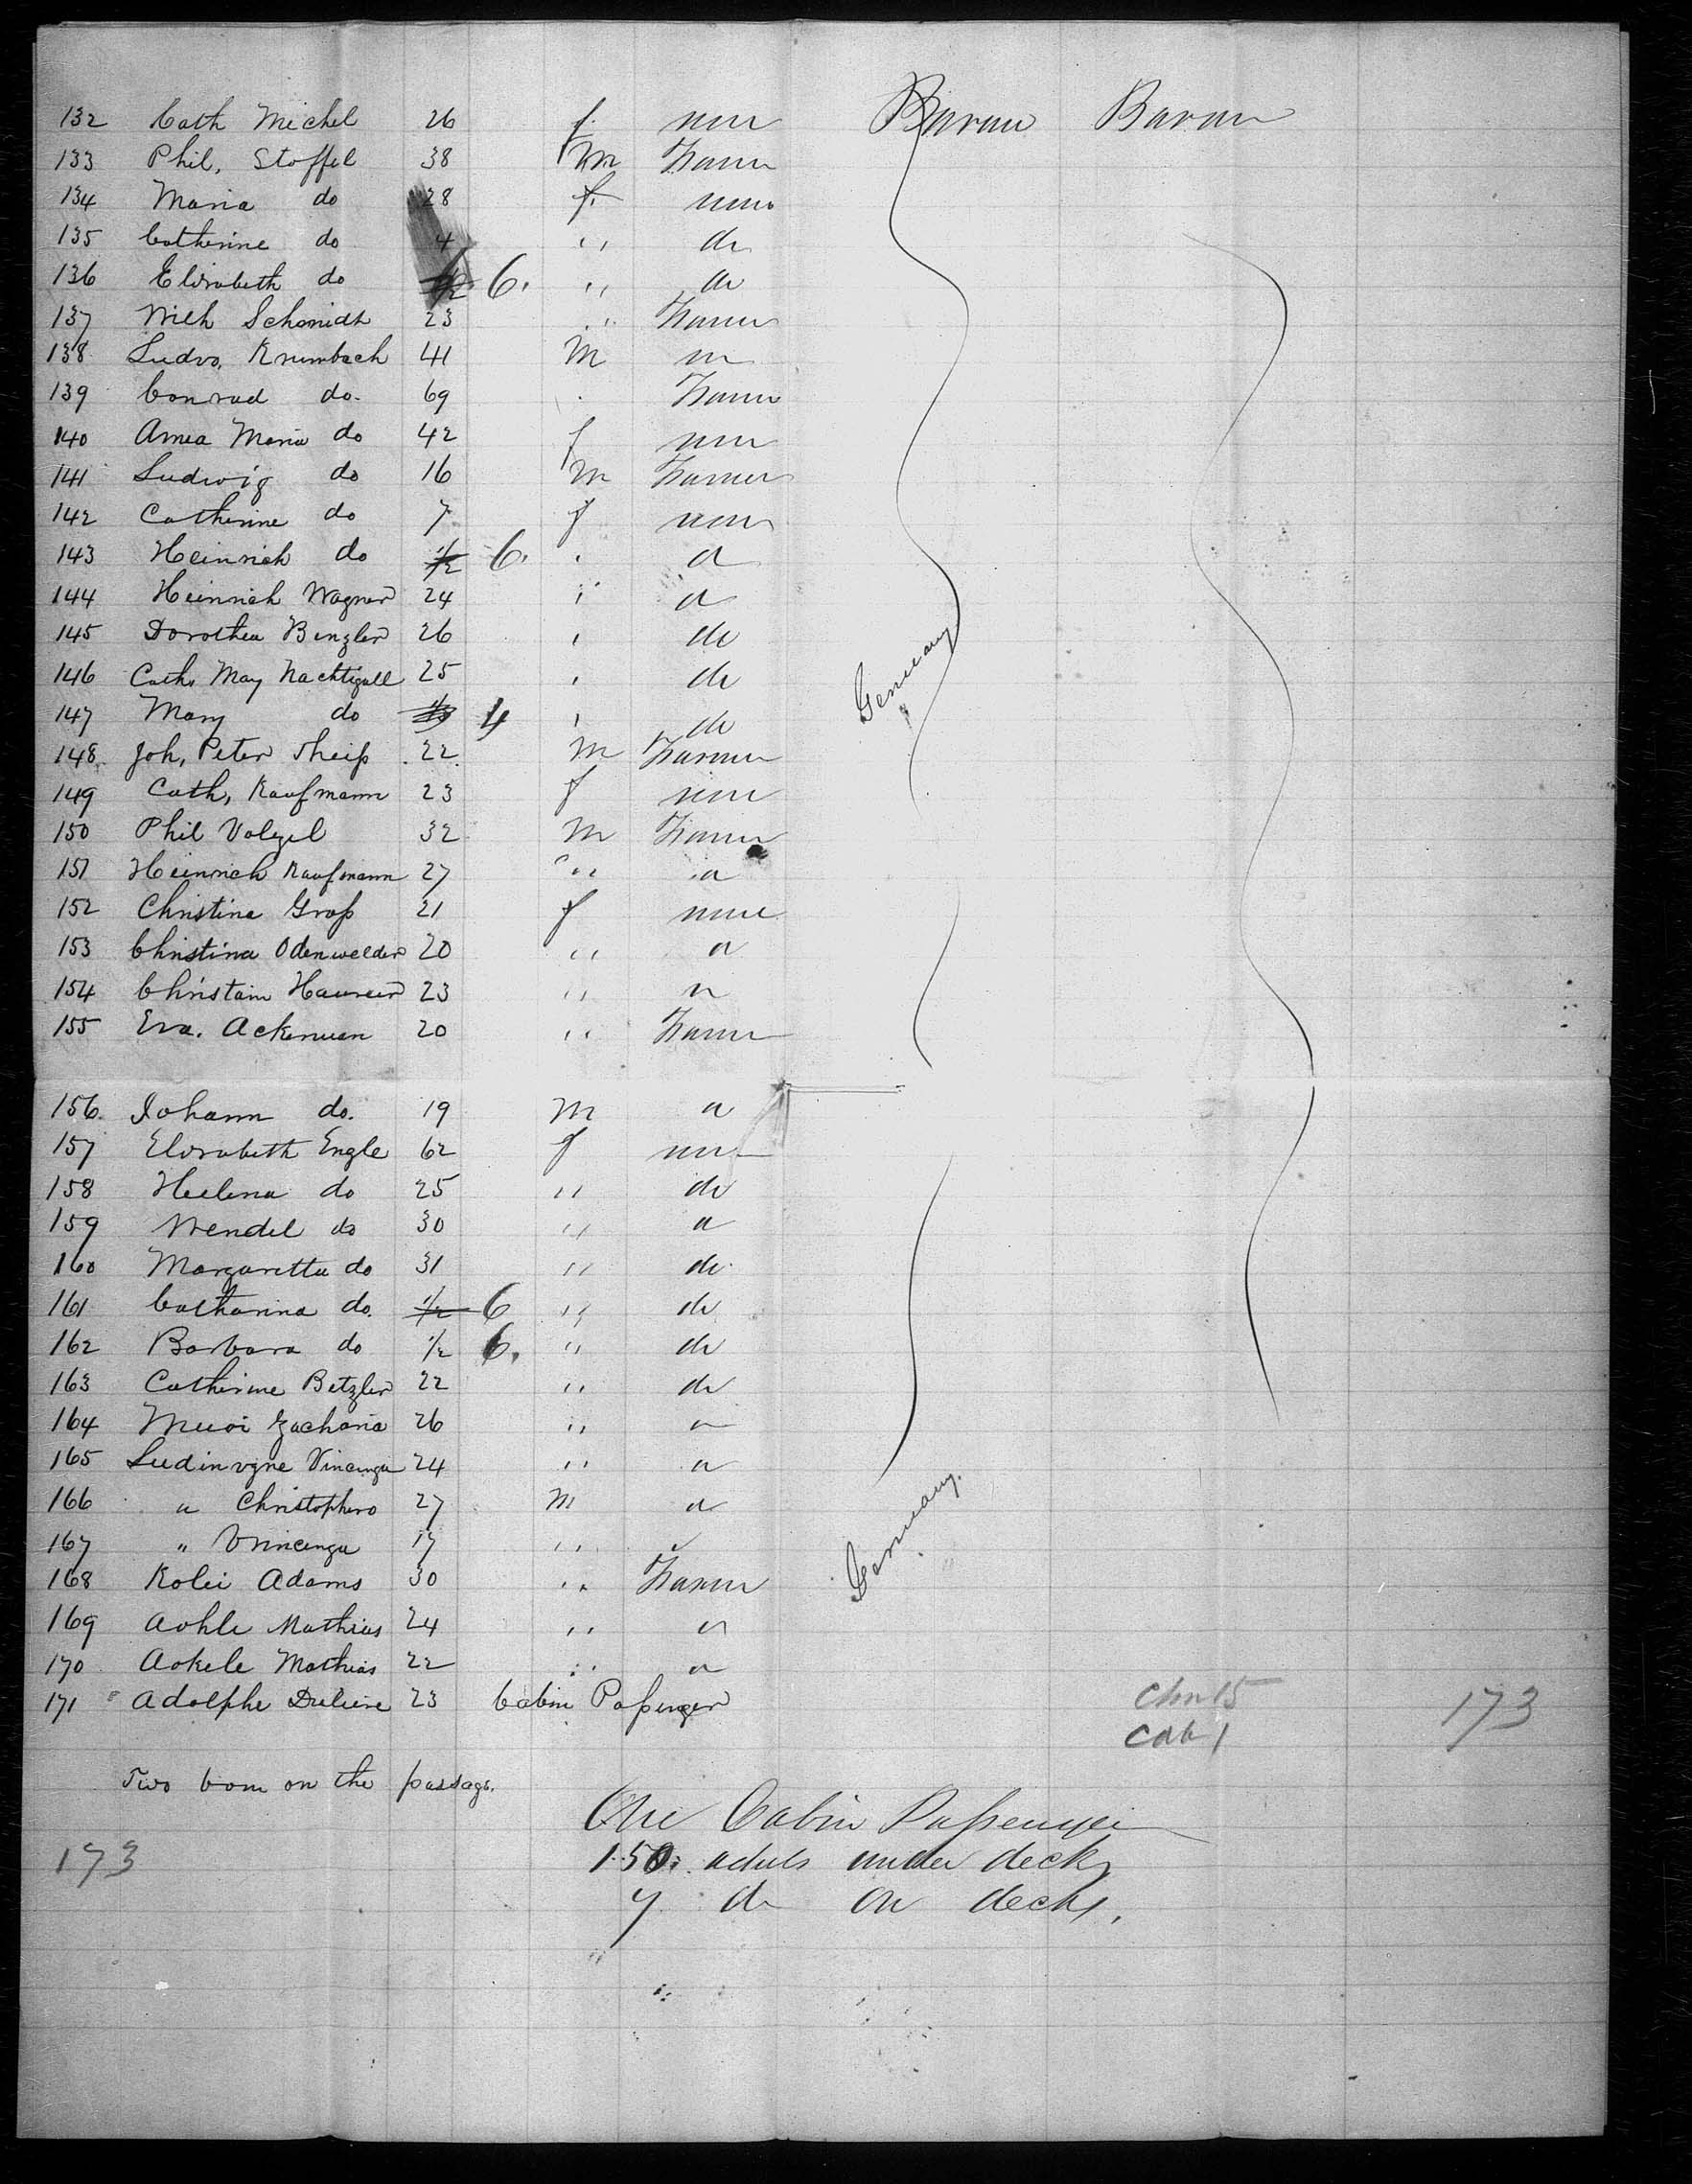 132 Cath Michel 26 f. none Baran Baran
133 Phil. Stoffel 38 m Farmer
134 Maria do 28 f. none
135 Catherine do 4 " do
136 Elisabeth do 1/2 6. " do
137 Wilh Schmidt 23 " Farmer
138 Ludw. Krumbach 41 M
139 Conrad do. 69 Farmer
140 Anna Maria do 42 f none
141 Ludwig do 16 m Farmer
142 Catherine do 7 f none
143 Heinrich do 1/2 6.
144 Heinrich Wagner 24
145 Dorothea Binzler 26 do
146 Cath. May Nachtigall 25 do
Germany
147 Mary do 4 do
148. Joh, Peter Theiß 22. m Farmer
149 Cath, Kaufmann 23 f none
150 Phil Volzel 32 m Farmer
151 Heinrich Kaufmann 27 "
152 Christina Groß 21 f none
153 Christina Odenwelder 20 "
154 Christain 23 "
155 Eva. Ackerman 20 " Farmer
156. Johann do. 19 m
157 Elisabeth Engle 62 f none
158 Heelena do 25 " do
159 Wendel do 30 "
160 Margaretta do 31 " do
161 Catharina do. 1/2 6 " do
162 Barbara do 1/2 6. " do
163 Catherine Betzler 22 " do
164 Zacharia 26 "
165 24 "
166 " Christophero 27 m
167 " 17 "
Germany.
168 Kolei Adams 30 " Farmer
169 Aohle Mathias 24 "
170 Aokele Mathias 22 "
171 Adolphe 23 Cabin Paßenger
Chn 15 173
Cab 1
Two born on the passage.
One Cabin Paßenger
173 150. aduls under deck
7 do on decks.